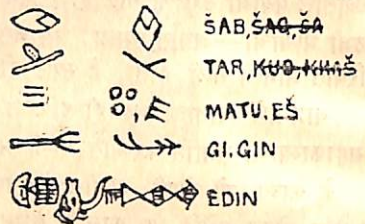 ŠAB,ŠAG,ŠA
TAR,KUD,
MATU.EŠ
GI.GIN
EDIN